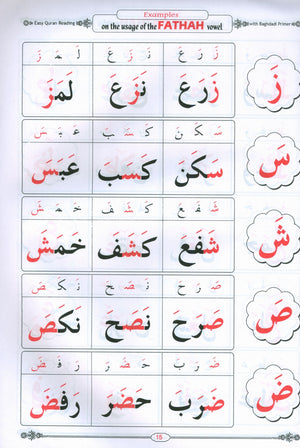 Examples
Easy Quran Reading
on the usage of the FATHAH vowel
with Baghdadi Primer
زَ
زَ رَ عَ نَ زَ عَ لَ مَ زَ
زَرَعَ نَزَعَ لَمَزَ
سَ
سَ كَ نَ كَ سَ بَ عَ بَ سَ
سَكَنَ كَسَبَ عَبَسَ
شَ
شَ فَ عَ كَ شَ فَ خَ مَ شَ
شَفَعَ كَشَفَ خَمَشَ
صَ
صَ رَ حَ نَ صَ حَ نَ كَ صَ
صَرَحَ نَصَحَ نَكَصَ
ضَ
ضَ رَ بَ حَ ضَ رَ رَ فَ ضَ
ضَرَبَ حَضَرَ رَفَضَ
15